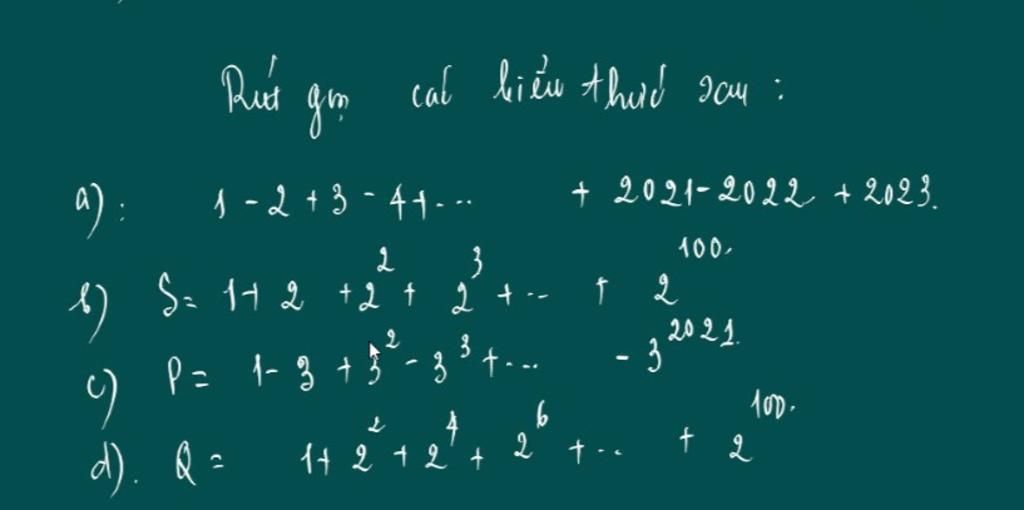 Rút gọn các biểu thức sau :
a): 1 - 2 + 3 - 4 + ... + 2021 - 2022 + 2023.
b) S = 1 + 2 + 2² + 2³ + ... + 2¹⁰⁰.
c) P = 1 - 3 + 3² - 3³ + ... - 3²⁰²¹.
d). Q = 1 + 2² + 2⁴ + 2⁶ + ... + 2¹⁰⁰.